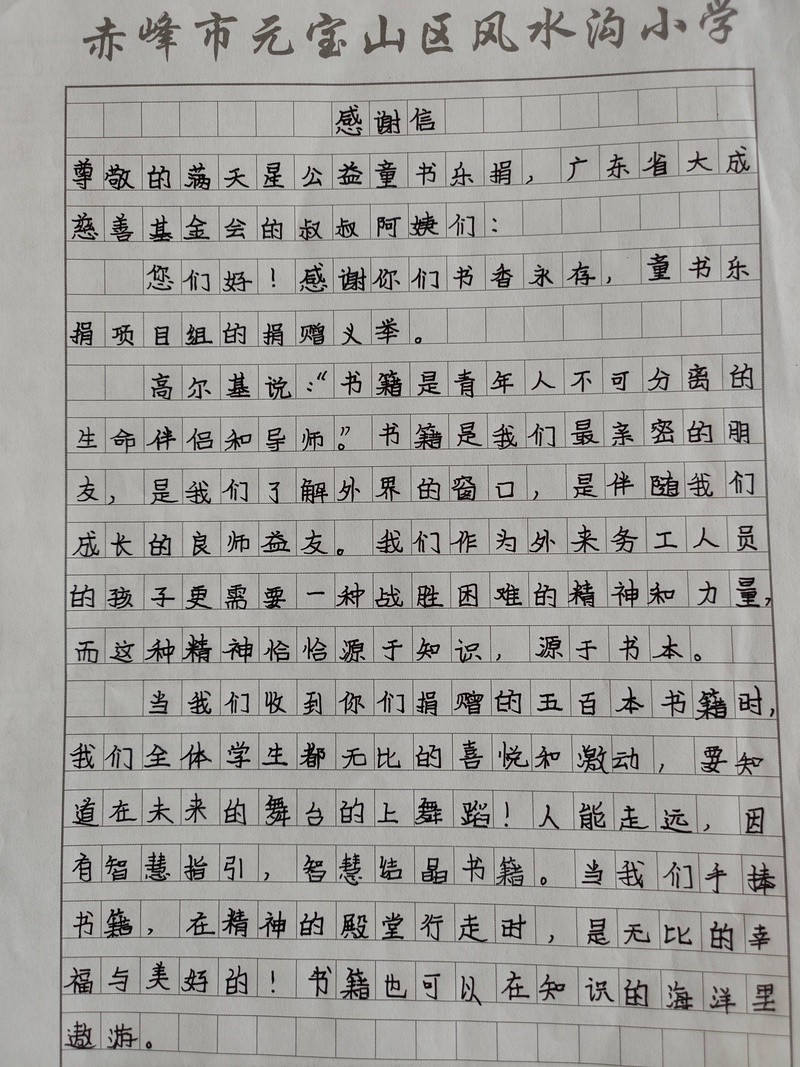 赤峰市元宝山区风水沟小学
感谢信
尊敬的满天星公益童书乐捐，广东省大成
慈善基金会的叔叔阿姨们：
您们好！感谢你们书香永存，童书乐
捐项目组的捐赠义举。
高尔基说：“书籍是青年人不可分离的
生命伴侣和导师”。书籍是我们最亲密的朋
友，是我们了解外界的窗口，是伴随我们
成长的良师益友。我们作为外来务工人员
的孩子更需要一种战胜困难的精神和力量，
而这种精神恰恰源于知识，源于书本。
当我们收到你们捐赠的五百本书籍时，
我们全体学生都无比的喜悦和激动，要知
道在未来的舞台的上舞蹈！人能走远，因
有智慧指引，智慧结晶书籍。当我们手捧
书籍，在精神的殿堂行走时，是无比的幸
福与美好的！书籍也可以在知识的海洋里
遨游。